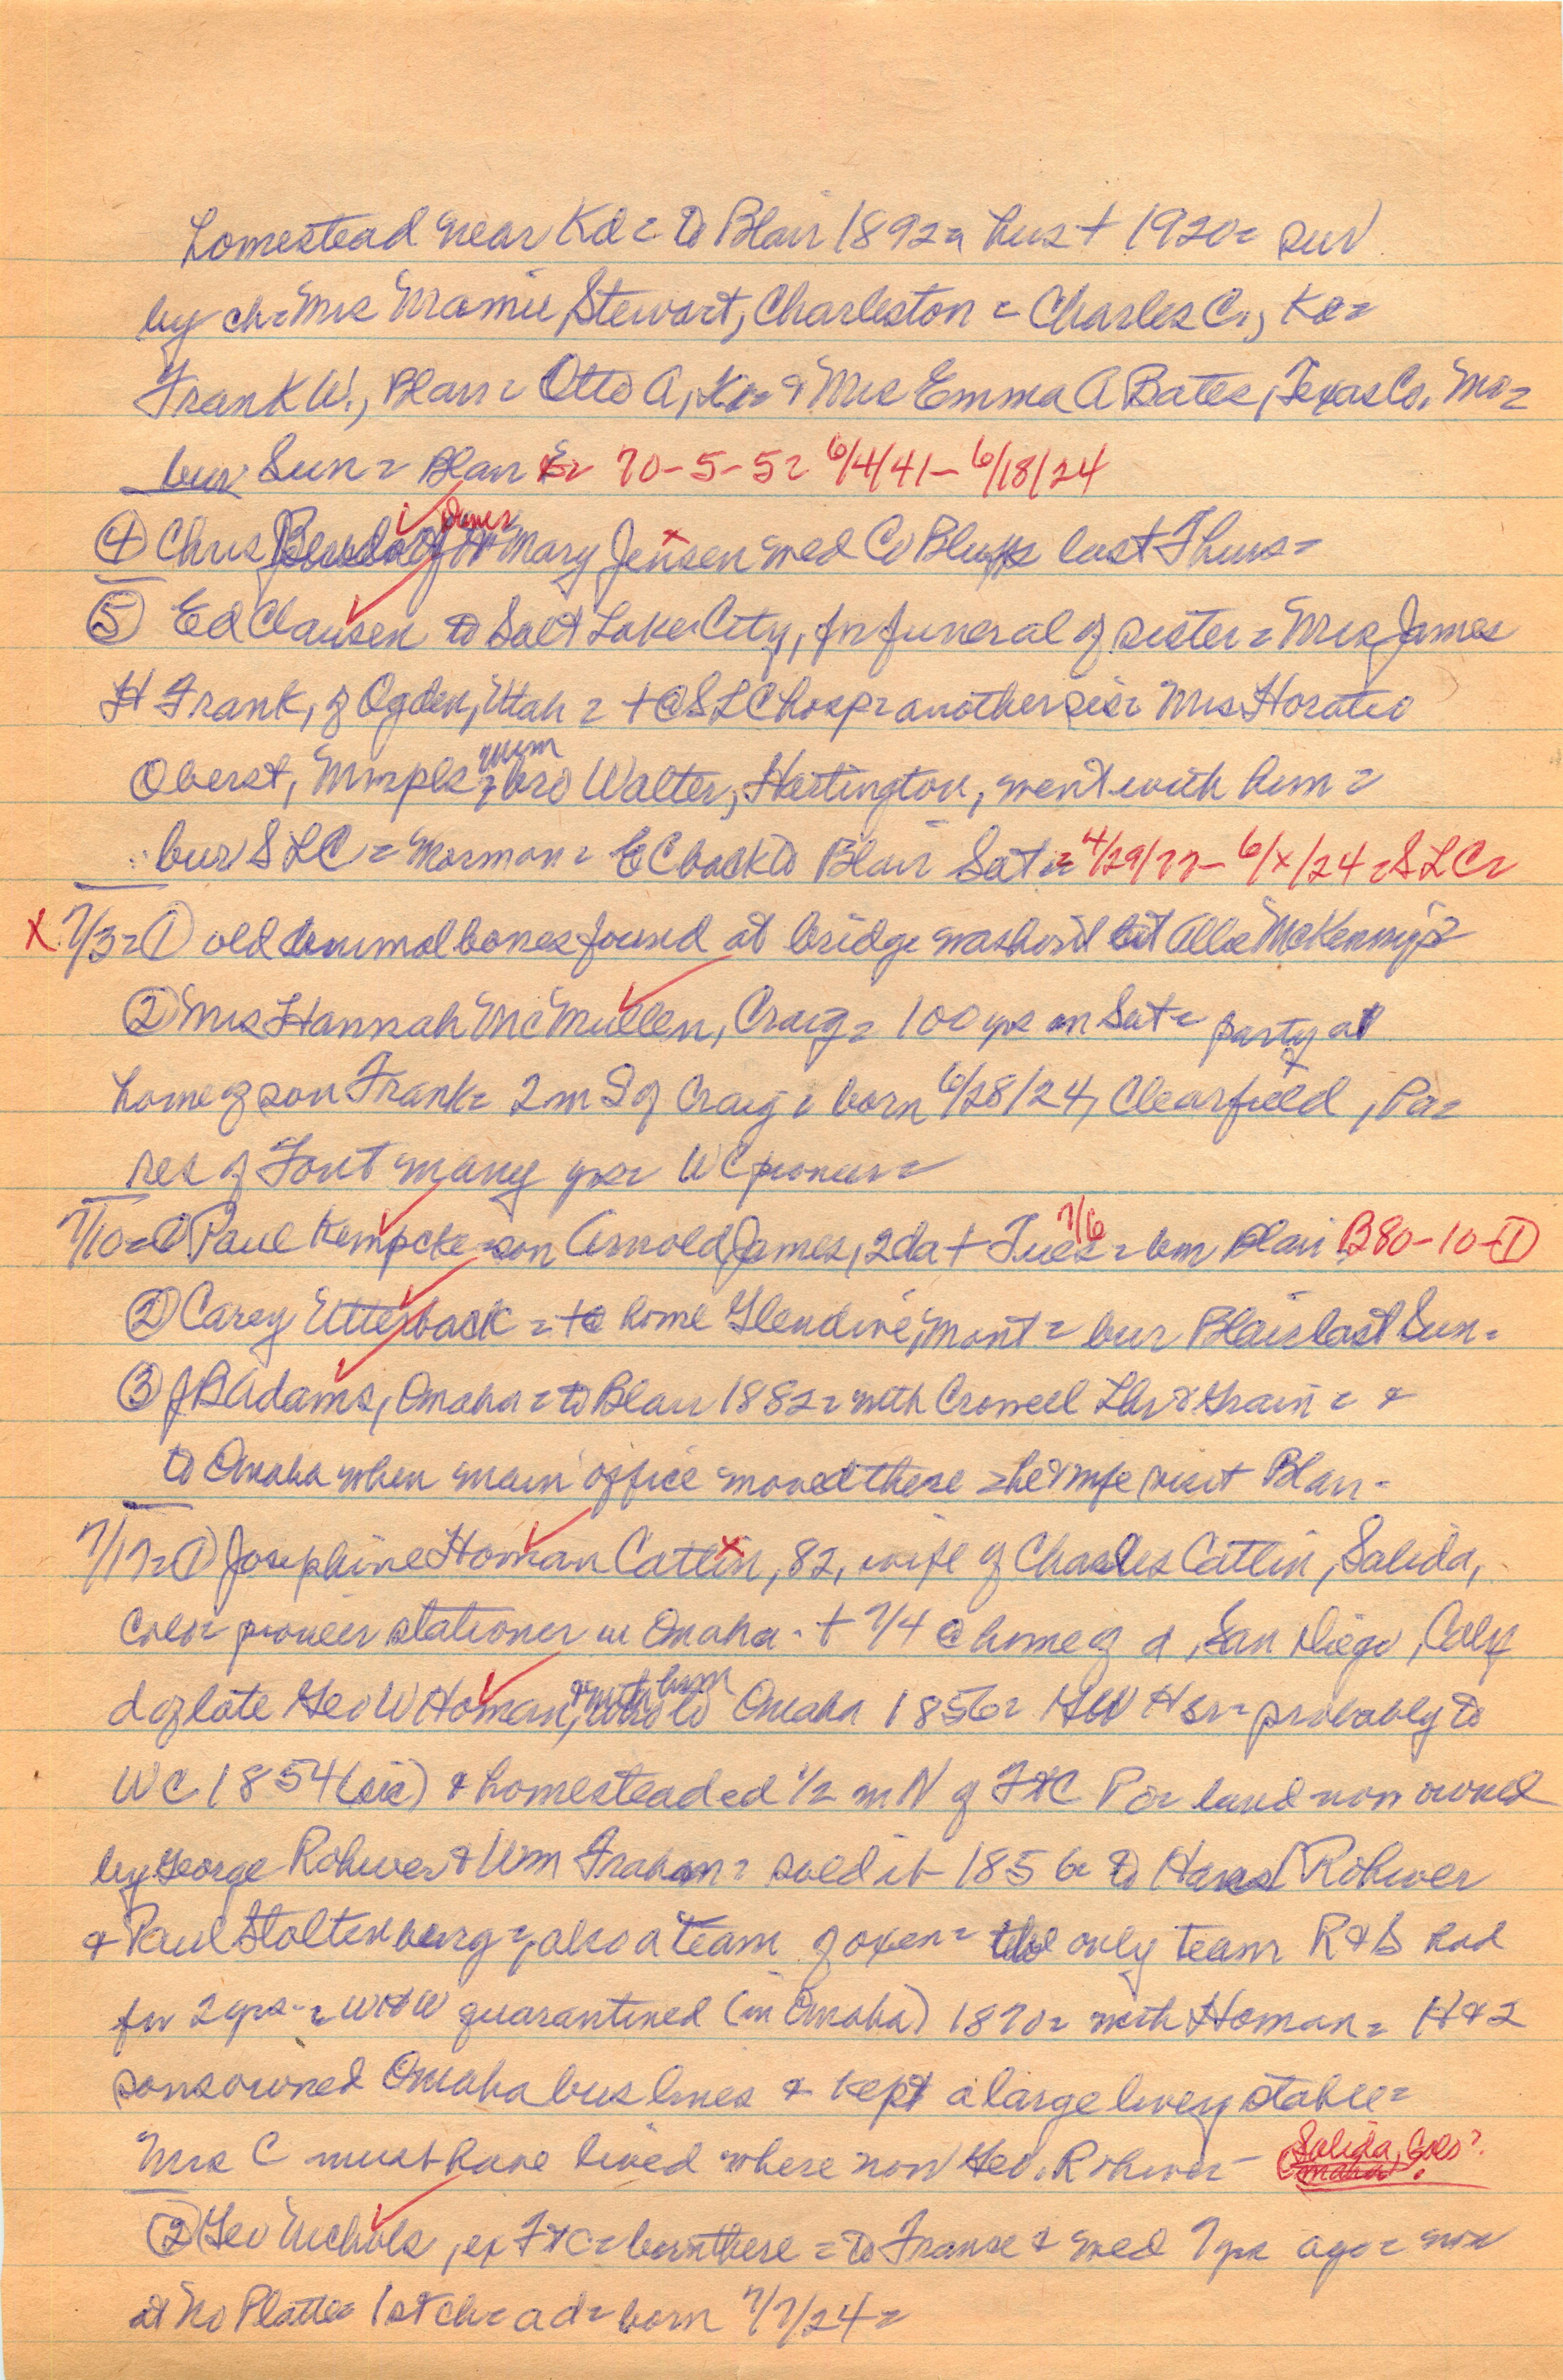 homestead near Kd = to Blair 1892 = hus + 1920 = sur
by ch = Mrs Mamie Stewart, Charleston = Charles C., Kd =
Frank W., Blair = Otto A, Kd = & Mrs Emma A Bates, Texas Co, Mo =
bur Sun = Blair C = 70-5-5 = 6/4/41 - 6/18/24
④ Chris to Mary Jensen wed Co Bluffs last Thurs =
⑤ Ed Clausen to Salt Lake City, for funeral of sister = Mrs James
H Frank, of Ogden, Utah = + @ SLC hosp = another sis = Mrs Horatio
Oberst, Mnpls, Minn = bro Walter, Hartington, went with him =
bur SLC = Mormon = EC back to Blair Sat = 4/29/77 - 6/x/24 = SLC =
x 7/3 = ① old animal bones found at bridge washout at Allie McKennys =
② Mrs Hannah McMullen, Craig = 100 yrs on Sat = party at
home of son Frank = 2 m S of Craig = born 6/28/24, Clearfield, Pa =
res of Font many yrs = WC pioneer =
7/10 = ① Paul Kempcke = son Arnold James, 2 da + Tues 7/6 = bur Blair B80-10-①
② Carey Utterback = + @ home Glendive, Mont = bur Blair last Sun =
③ J B Adams, Omaha = to Blair 1882 = with Crowell Lbr & Grain = &
to Omaha when main office moved there = he & wife visit Blair -
7/17 = ① Josephine Homan Catlin, 82, wife of Charles Catlin, Salida,
Colo = pioneer stationer in Omaha - + 7/4 @ home of d, San Diego, Calif
d of late Geo W Homan, & with him to Omaha 1856 = GW H sr = probably to
WC 1854 (sic) & homesteaded 1/2 m N of FtC PO = land now owned
by George Rohwer & Wm Frahm = sold it 1856 to Hans Rohwer
& Paul Stoltenberg =, also a team of oxen = the only team R & S had
for 2 yrs - = W&W quarantined (in Omaha) 1870 = with Homan = H & 2
sons owned Omaha bus lines & kept a large livery stable =
Mrs C must have lived where now Geo. Rohwer - Salida, Colo?
Omaha?
② Geo Nichols, ex FtC = born there = to France & wed 7 yrs ago = now
at No Platte = 1st ch = a d = born 7/7/24 =